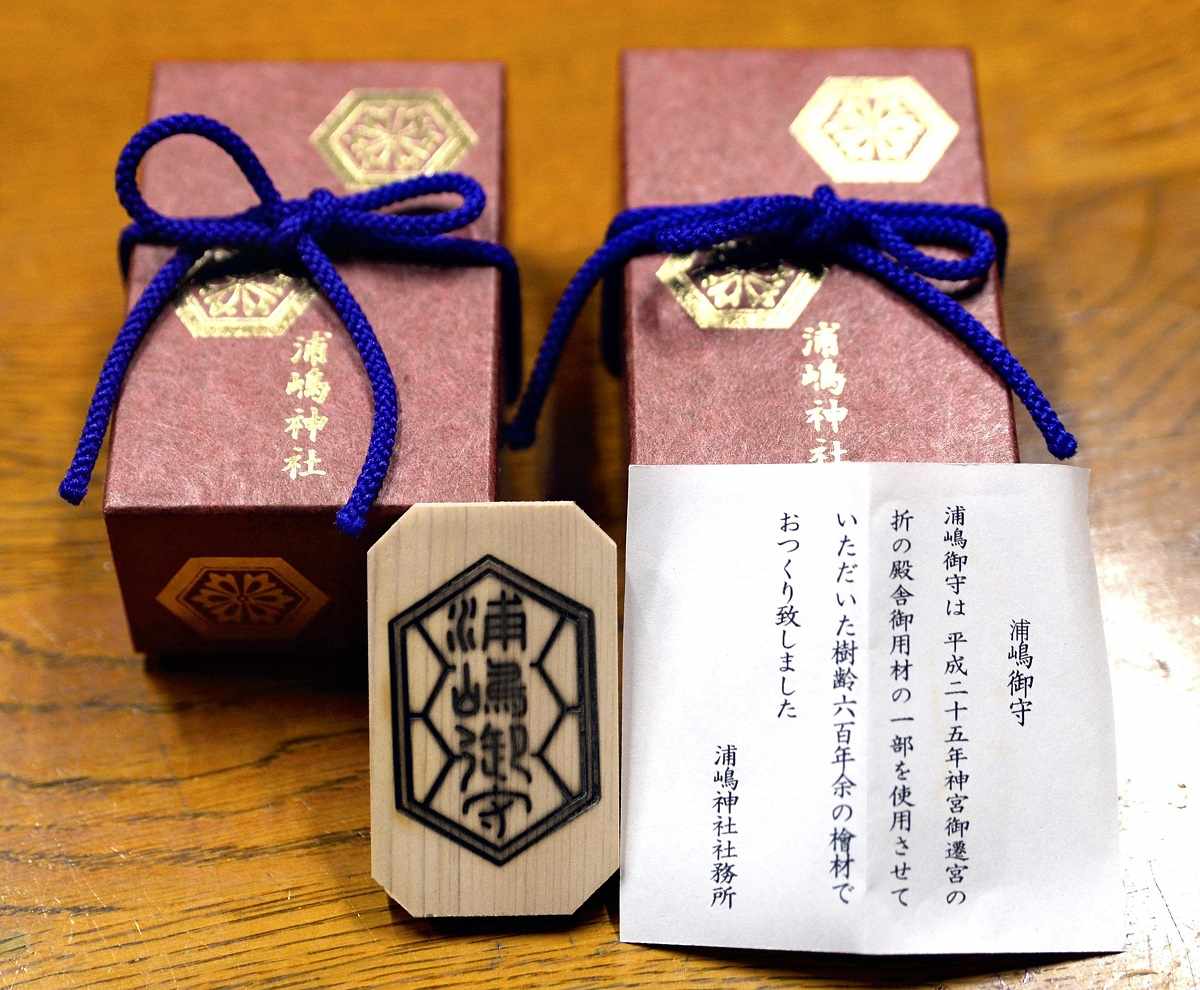 浦嶋神社
浦嶋神社
浦嶋御守
浦嶋御守
浦嶋御守は 平成二十五年神宮御遷宮の
折の殿舎御用材の一部を使用させて
いただいた樹齢六百年余の檜材で
おつくり致しました
浦嶋神社社務所